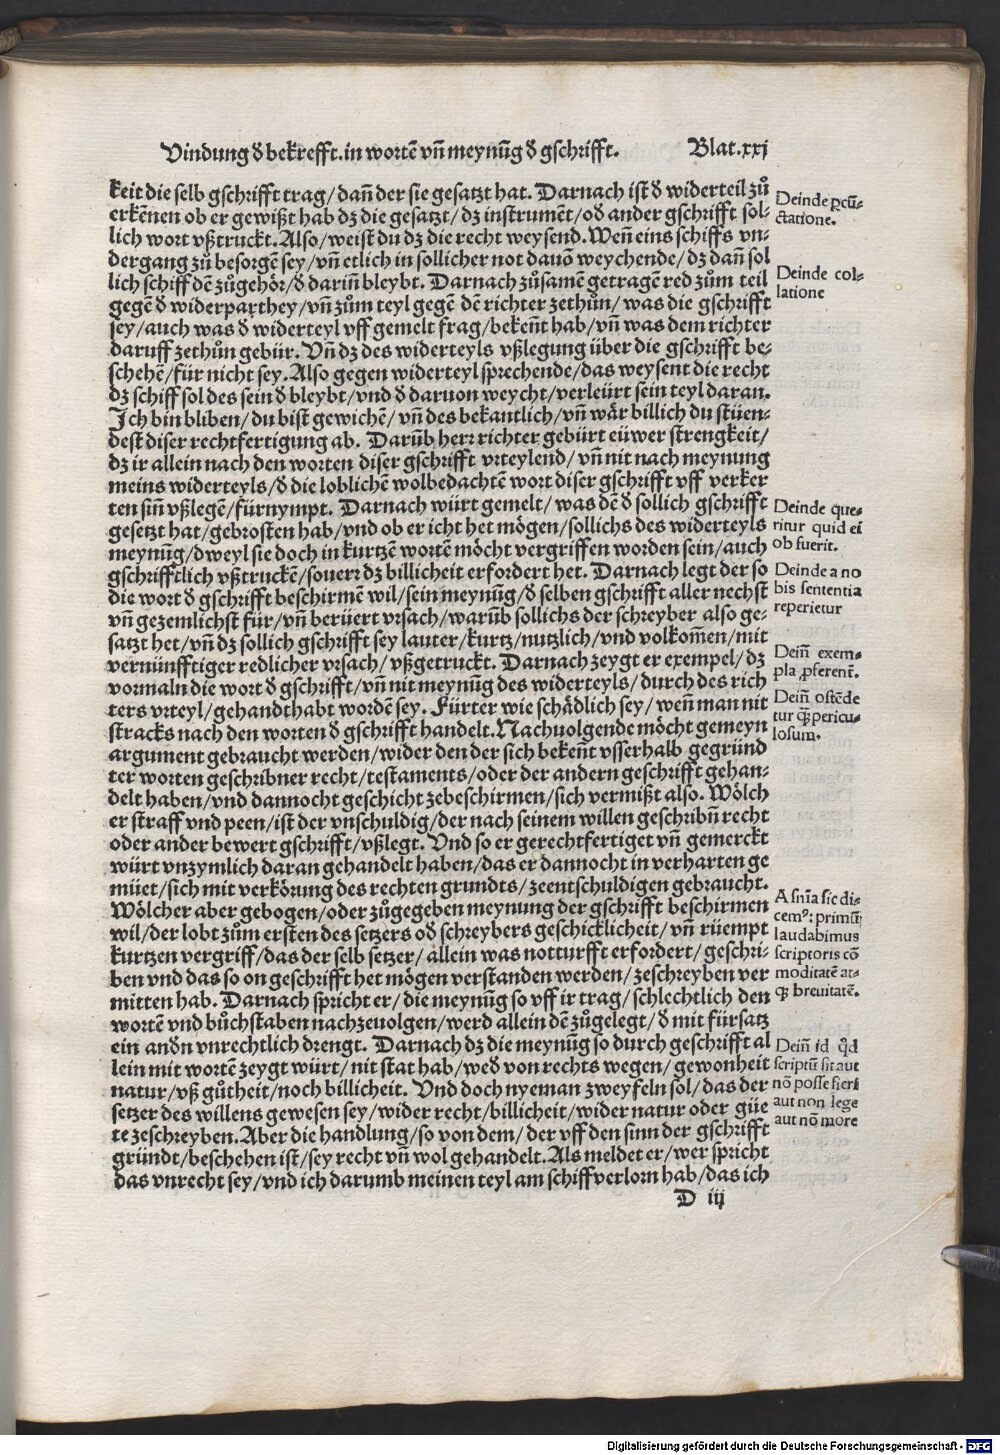 Vindung đ bekrefft. in wortē vñ meynūg đ gschrifft. Blat.xxj
keit die selb gschrifft trag/dañ der sie gesatzt hat. Darnach ist đ widerteil zů
erkēnen ob er gewißt hab dz die gesatzt/dz instrumēt/ođ ander gschrifft sol-
lich wort vßtruckt. Also/weist du dz die recht weysend. Weñ eins schiffs vn-
dergang zů besorgē sey/vñ etlich in sollicher not dauō weychende/dz dañ sol
lich schiff dē zůgehör/đ dariñ bleybt. Darnach zůsamē getragē red zům teil
gegē đ widerparthey/vñ zům teyl gegē dē richter zethůn/was die gschrifft
sey/auch was đ widerteyl vff gemelt frag/bekeñt hab/vñ was dem richter
daruff zethůn gebür. Vñ dz des widerteyls vßlegung über die gschrifft be-
schehē/für nicht sey. Also gegen widerteyl sprechende/das weysent die recht
dz schiff sol des sein đ bleybt/vnd đ daruon weycht/verleürt sein teyl daran.
Ich bin bliben/du bist gewichē/vñ des bekantlich/vñ wär billich du stüen-
dest diser rechtfertigung ab. Darūb herr richter gebürt eüwer strengkeit/
dz ir allein nach den worten diser gschrifft vrteylend/vñ nit nach meynung
meins widerteyls/đ die loblichē wolbedachtē wort diser gschrifft vff verker
ten siñ vßlegē/fürnympt. Darnach würt gemelt/was dē đ sollich gschrifft
gesetzt hat/gebrosten hab/vnd ob er icht het mögen/sollichs des widerteyls
meynūg/dweyl sie doch in kurtzē wortē möcht vergriffen worden sein/auch
gschrifftlich vßtruckē/souerr dz billicheit erfordert het. Darnach legt der so
die wort đ gschrifft beschirmē wil/sein meynūg/đ selben gschrifft aller nechst
vñ gezemlichst für/vñ berüert vrsach/warūb sollichs der schreyber also ge-
satzt het/vñ dz sollich gschrifft sey lauter/kurtz/nutzlich/vnd volkom̄en/mit
vernünfftiger redlicher vrsach/vßgetruckt. Darnach zeygt er exempel/dz
vormaln die wort đ gschrifft/vñ nit meynūg des widerteyls/durch des rich
ters vrteyl/gehandthabt wordē sey. Fürter wie schädlich sey/weñ man nit
stracks nach den worten đ gschrifft handelt. Nachuolgende möcht gemeyn
argument gebraucht werden/wider den der sich bekeñt vsserhalb gegründ
ter worten geschribner recht/testaments/oder der andern geschrifft gehan-
delt haben/vnd dannocht geschicht zebeschirmen/sich vermißt also. Wölch
er straff vnd peen/ist der vnschuldig/der nach seinem willen geschribñ recht
oder ander bewert gschrifft/vßlegt. Vnd so er gerechtfertiget vñ gemerckt
würt vnzymlich daran gehandelt haben/das er dannocht in verharten ge
müet/sich mit verkörung des rechten grundts/zeentschuldigen gebraucht.
Wölcher aber gebogen/oder zůgegeben meynung der gschrifft beschirmen
wil/der lobt zům ersten des setzers ođ schreybers geschicklicheit/vñ rüempt
kurtzen vergriff/das der selb setzer/allein was notturfft erfordert/geschri-
ben vnd das so on geschrifft het mögen verstanden werden/zeschreyben ver
mitten hab. Darnach spricht er/die meynūg so vff ir trag/schlechtlich den
wortē vnd bůchstaben nachzeuolgen/werd allein dē zůgelegt/đ mit fürsatz
ein anđn vnrechtlich drengt. Darnach dz die meynūg so durch geschrifft al
lein mit wortē zeygt würt/nit stat hab/weđ von rechts wegen/gewonheit
natur/vß gůtheit/noch billicheit. Vnd doch nyeman zweyfeln sol/das der
setzer des willens gewesen sey/wider recht/billicheit/wider natur oder güe
te zeschreyben. Aber die handlung/so von dem/der vff den sinn der gschrifft
gründt/beschehen ist/sey recht vñ wol gehandelt. Als meldet er/wer spricht
das vnrecht sey/vnd ich darumb meinen teyl am schiff verlorn hab/das ich
D iij
Deinde ꝑcū-
ctatione.
Deinde col-
latione
Deinde que-
ritur quid ei
ob fuerit.
Deinde a no
bis sententia
reperietur
Deiñ exem-
pla ꝓferent̃.
Deiñ ostēde
tur q̃ꝫ pericu-
losum.
A snīa sic di-
cemꝰ: primū
laudabimus
scriptoris cō
moditatē at-
qꝫ breuitatē.
Deiñ id qđ
scriptū sit aut
nō posse fieri
aut non lege
aut nō more
Digitalisierung gefördert durch die Deutsche Forschungsgemeinschaft - DFG